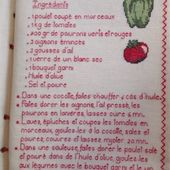 Ingrédients
1 poulet coupé en morceaux
1 kg de tomates
400 gr de poivrons verts et rouges
3 oignons émincés
2 gousses d'ail
1 verre de vin blanc sec
1 bouquet garni
Huile d'olive
Sel et poivre
Dans une cocotte, faites chauffer 4 càs d'huile.
Faites dorer les oignons, l'ail pressé, les
poivrons en lanières, laissez cuire 5 mn.
Lavez, épluchez et coupez les tomates en
morceaux, ajoutez-les à la cocotte, salez et
poivrez, couvrez et laissez mijoter 20 mn.
Dans une sauteuse, faites dorer le poulet salé
et poivré dans de l'huile d'olive, ajoutez-les
aux légumes avec le bouquet garni et